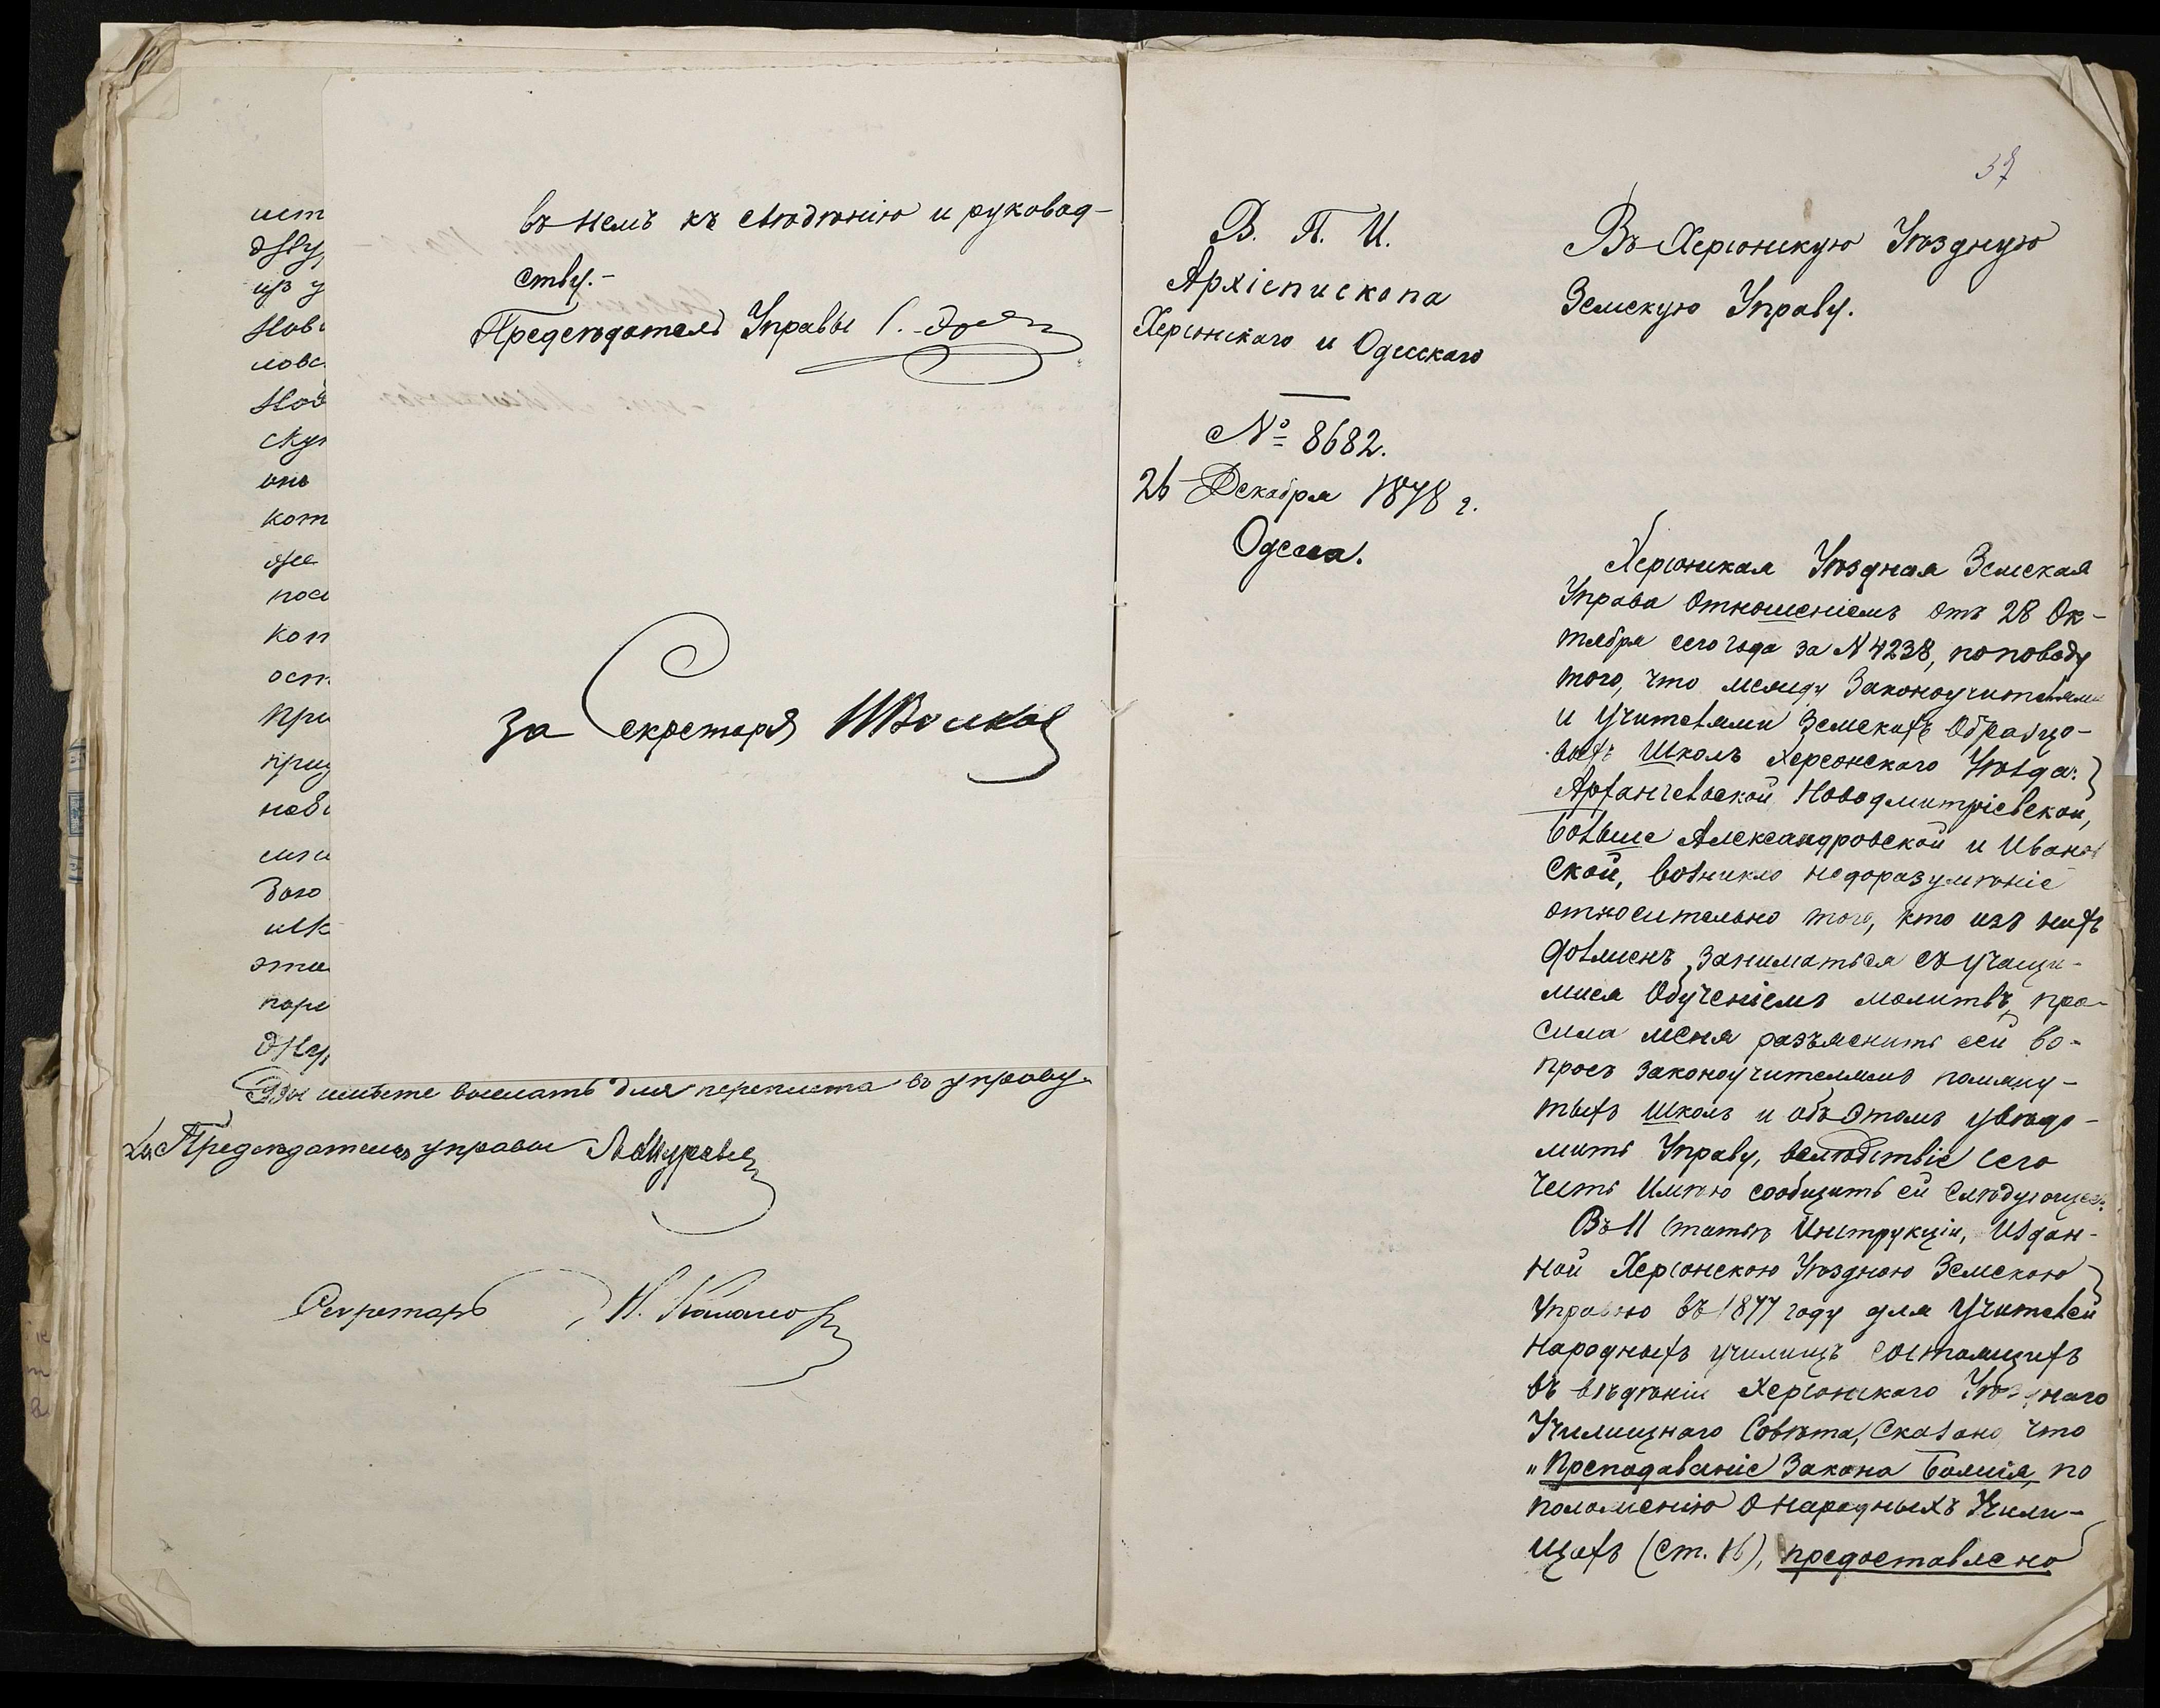 въ немъ къ свѣдѣнію и руковод-
ству.-
Предсѣдатель Управы
за Секретаря
ист
из у
Нов
ловс
ску
онъ
кот
же
пос
кот
ост
при
нов
эти
Вы имѣете выслать для переплета въ управу.
Предсѣдатель управы
Секретарь
37
В. П. И.
Архіепископа
Херсонскаго и Одесскаго
№ 8682.
26 Декабря 1878 г.
Одесса.
Въ Херсонскую Уѣздную
Земскую Управу.
Херсонская Уѣздная Земская
Управа отношеніемъ отъ 28 Ок-
тября сего года за N 4238, по поводу
того, что между Законоучителями
и учителями Земскихъ Образцо-
выхъ Школъ Херсонскаго Уѣзда:
Архангельской Новодмитріевской,
больше Александровской и Иванов
ской, возникло недоразумѣніе
относительно того, кто изъ нихъ
долженъ заниматься съ учащи-
мися Обученіемъ молитвъ, про-
сила меня разъяснить сей во-
просъ законоучителямъ помяну-
тыхъ Школъ и объ Этомъ увѣдо-
мить Управу, вслѣдствіе сего
честь Имѣю сообщить ей слѣдующее:
Въ 11 статьѣ Инструкціи, Издан-
ной Херсонскою Уѣздною Земскою
Управою въ 1877 году для Учителей
Народныхъ училищъ состоящихъ
въ вѣдѣніи Херсонскаго Уѣзднаго
Училищнаго Совѣта, Сказано, что
„Преподаваніе Закона Божія, по
положенію о Народныхъ Учили-
щахъ (ст. 16), предоставлено